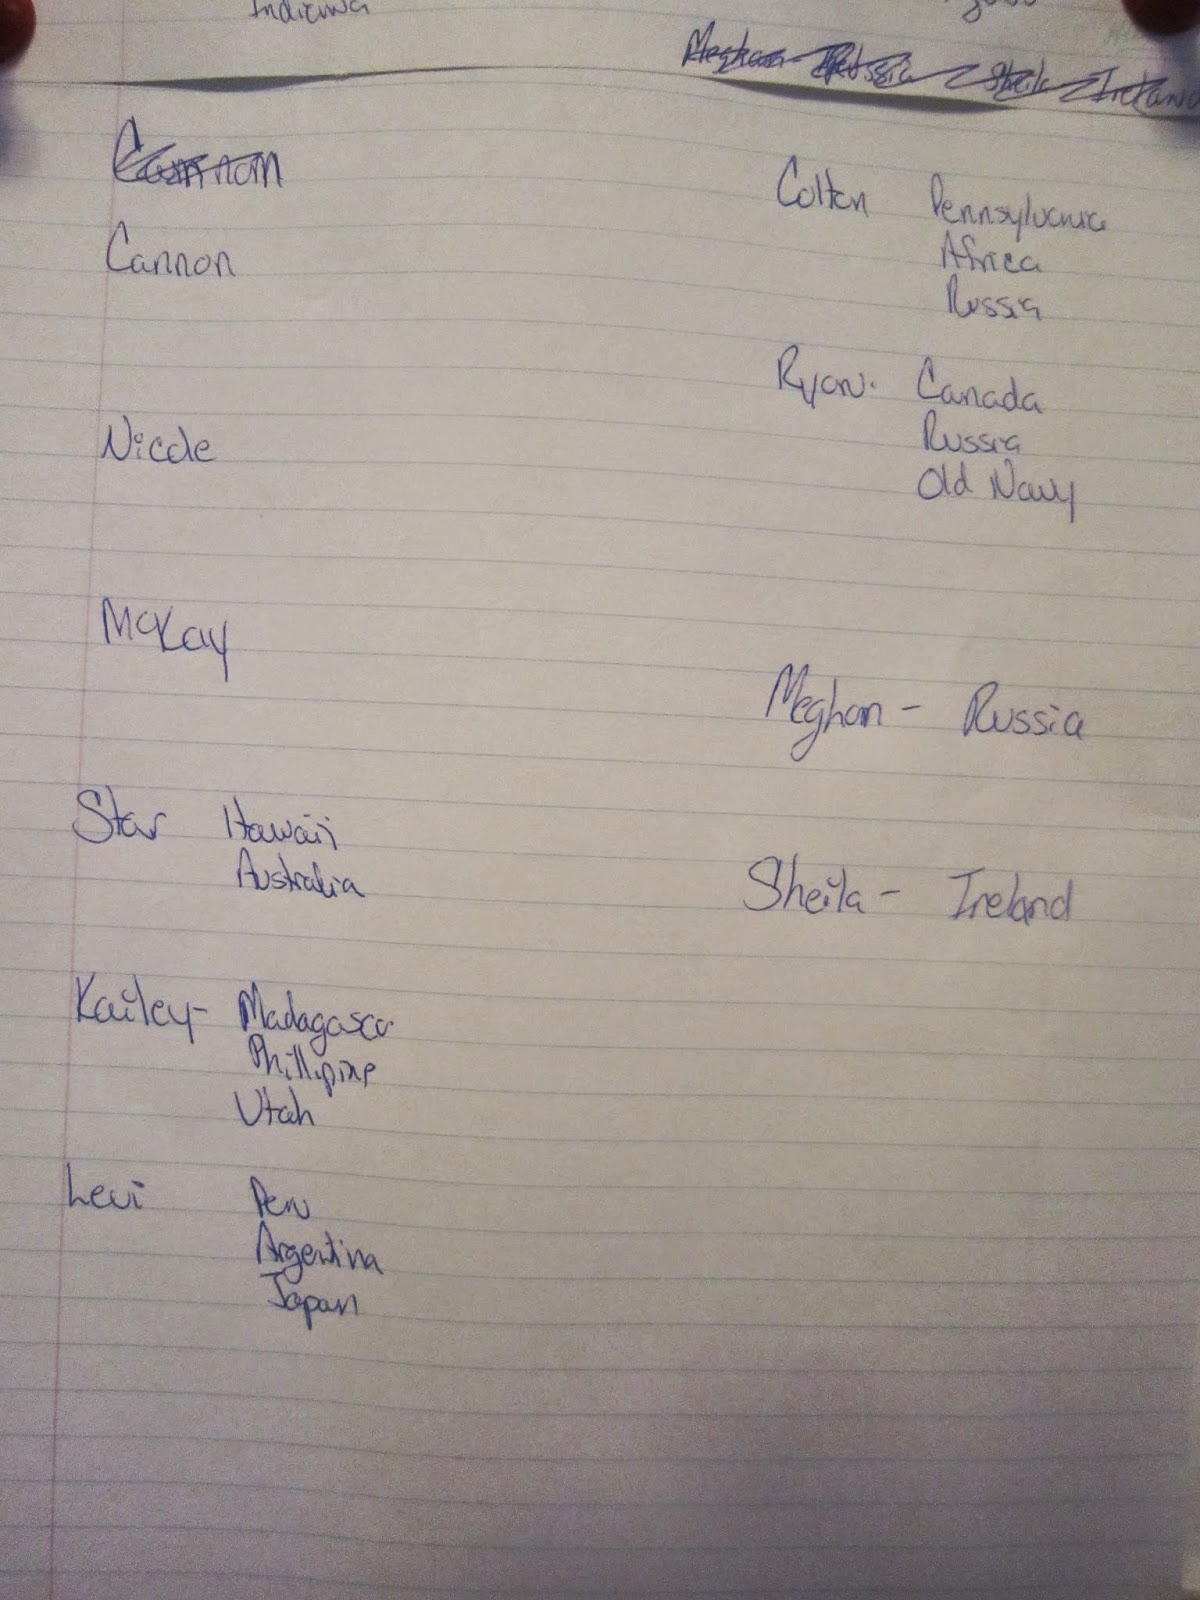 Indiana
Meghan - Russia Sheila - Ireland
Cannon
Cannon
Nicole
McKay
Star Hawaii
Australia
Kailey- Madagascar
Phillipine
Utah
Levi Peru
Argentina
Japan
Colton Pennsylvania
Africa
Russia
Ryan. Canada
Russia
Old Navy
Meghan - Russia
Sheila - Ireland